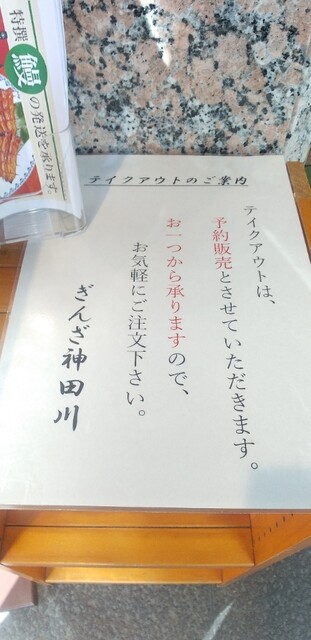 特撰 鰻 の発送を承ります。
テイクアウトのご案内
テイクアウトは、
予約販売とさせていただきます。
お一つから承りますので、
お気軽にご注文下さい。
ぎんざ神田川